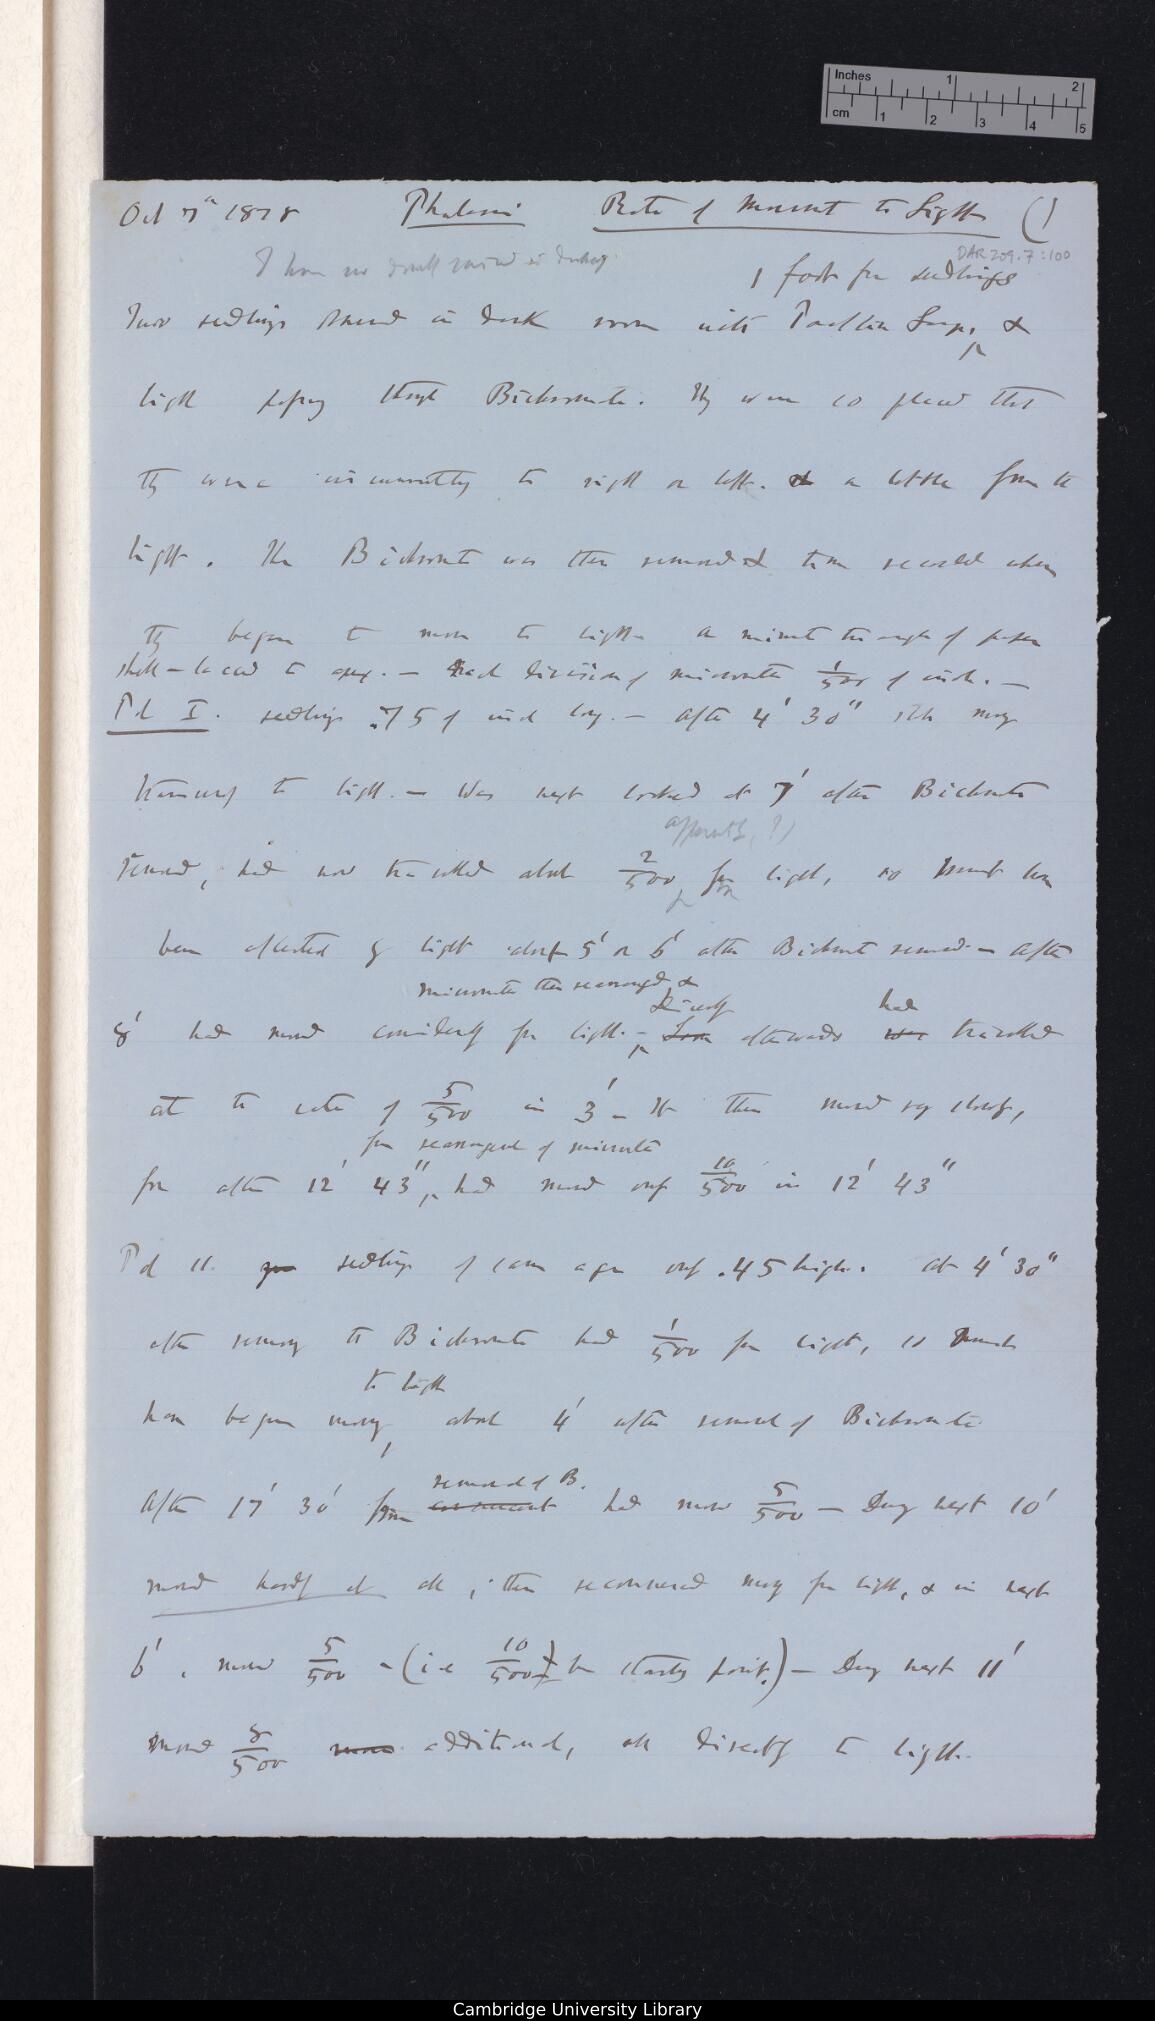 Inches 1 2
cm 1 2 3 4 5
Oct 7th 1878 Phalaris Rate of movement to Light (1
DAR 209.7:100
I have no doubt raised in darkness
1 foot from seedlings
Two seedlings placed in dark room with Paraffin Lamp, &
light passing through Bichromate. They were so placed that
they were to right or left. & a little from the
light. The Bichromate was then removed & time recorded when
they began to move to light a minute triangle of paper
to apex. — Each division of micrometer 1/500 of inch. —
Pd I. seedlings .75 of inch long. — After 4' 30" still moving
to light. — Was next looked at 7' after Bichromate
apparently (?)
removed, had now travelled about 2/500 from light, so must have
been affected by light about 5' or 6' after Bichromate removed — After
micrometer then rearranged &
directly had
8' had moved considerably from light. — afterwards travelled
at the rate of 5/500 in 3' — It then moved very slowly,
from rearrangement of micrometer
for after 12' 43", had moved only 10/500 in 12' 43"
Pd II. seedlings of same age only .45 high. At 4' 30"
after removing the Bichromate had 1/500 from light, so must
to light
have begun moving about 4' after removal of Bichromate
removal of B.
After 17' 30' from had moved 5/500 — During next 10'
moved hardly at all, then recommenced moving from light, & in next
6', moved 5/500 – (i.e 10/500 from starting point.) — During next 11'
moved 8/500 additional, all directly to light.
Cambridge University Library